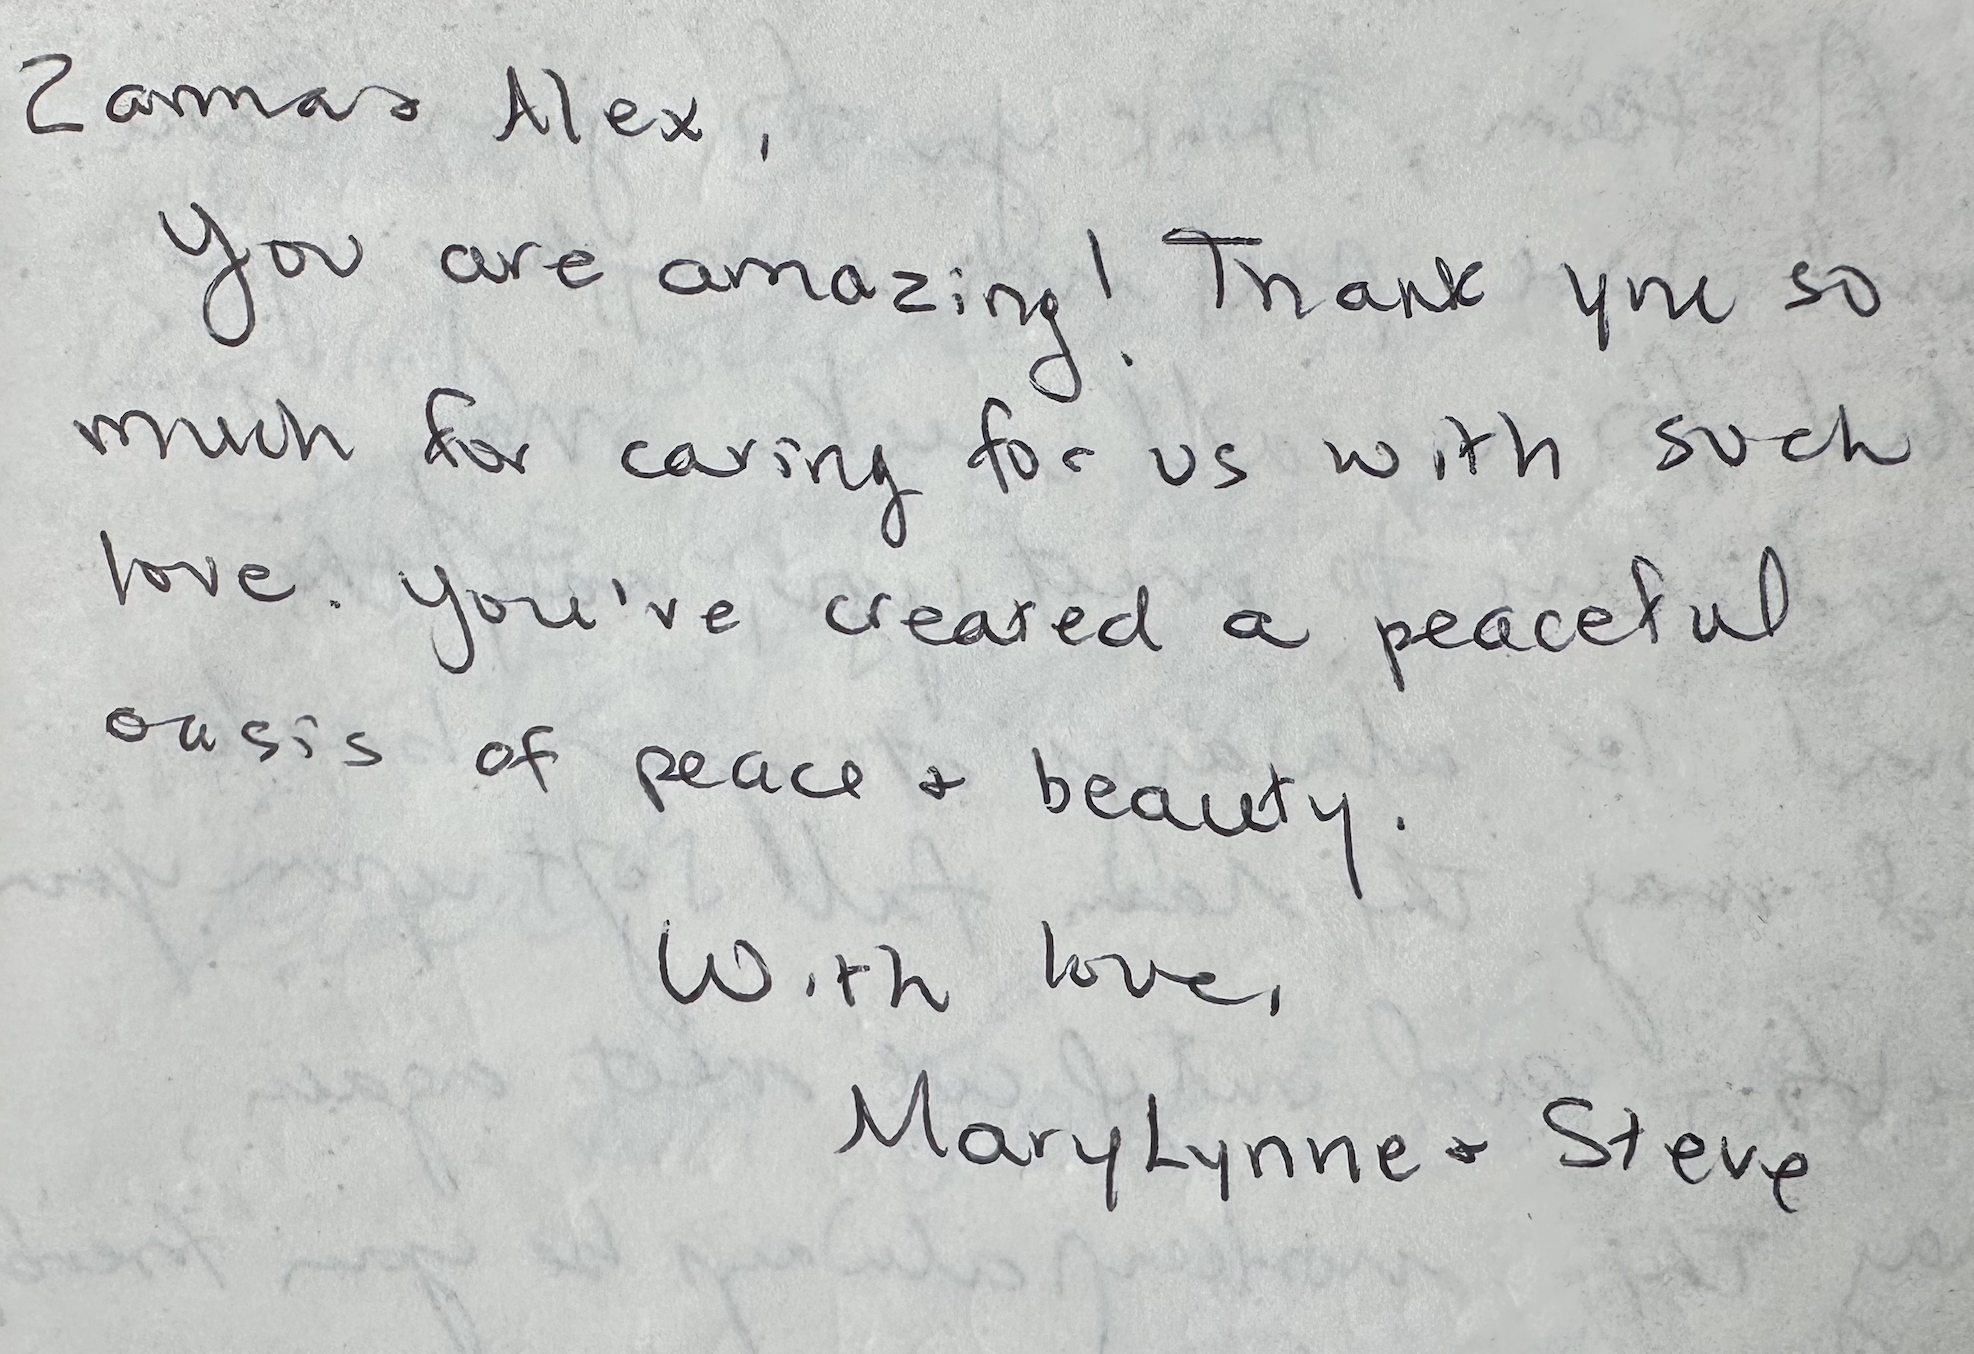 Zamma & Alex,
You are amazing! Thank you so
much for caring for us with such
love. You've created a peaceful
oasis of peace & beauty.
With love,
MaryLynne & Steve